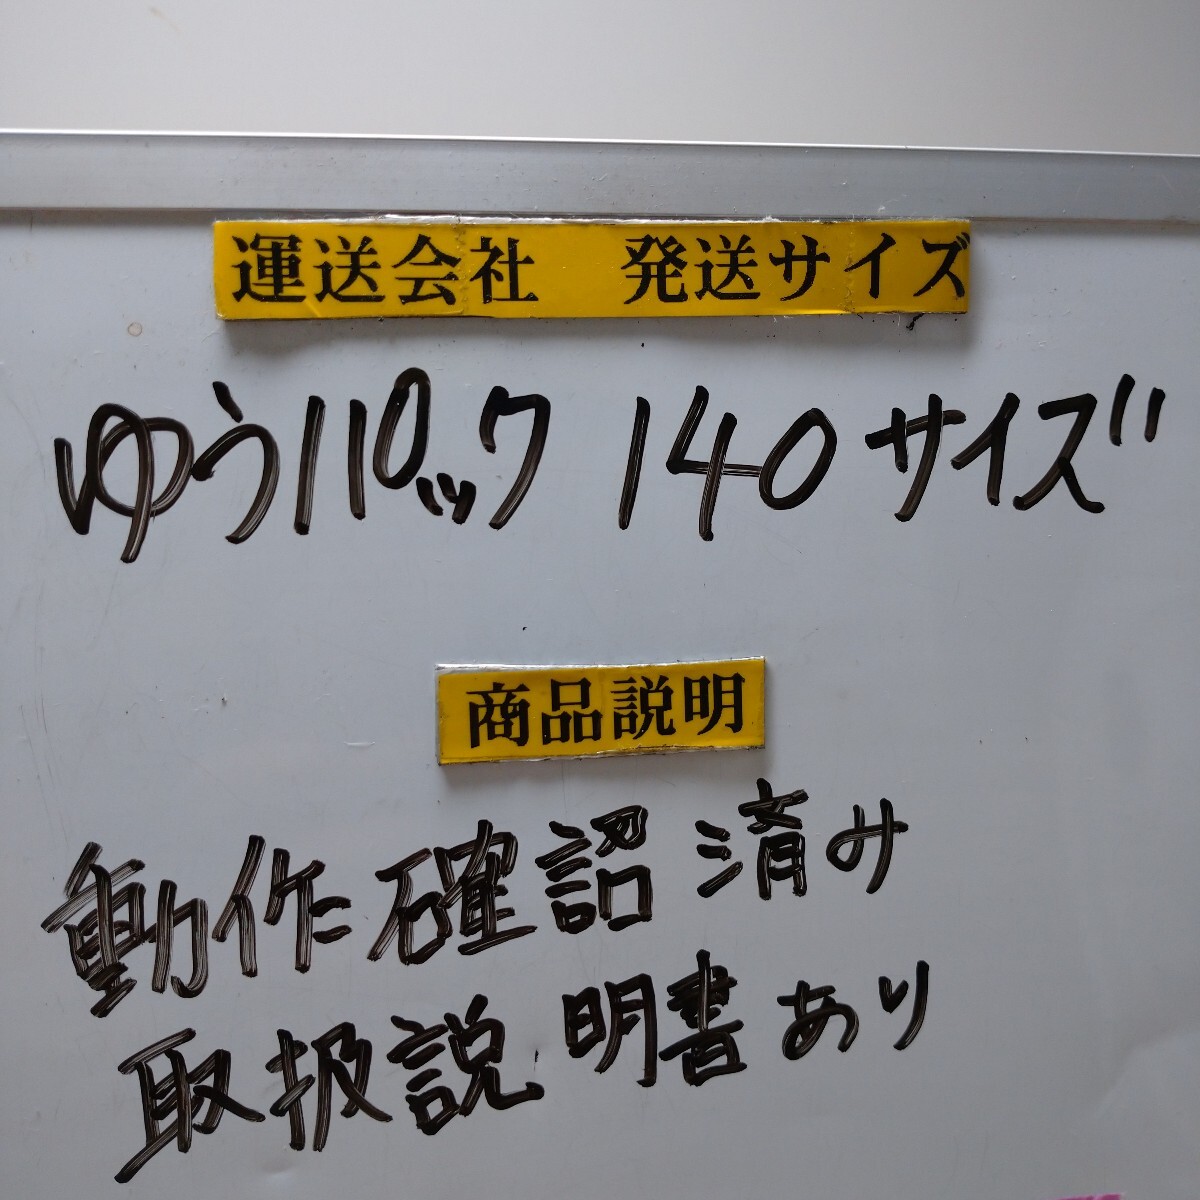 運送会社　発送サイズ
ゆうパック 140サイズ
商品説明
動作確認済み
取扱説明書あり